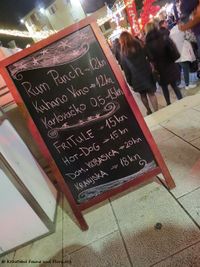 Rum Punch - 12kn
Kuhano Vino - 12kn
Karlovačko 0.5 - 15kn
FRITULE - 15kn
HOT-DOG - 15kn
DOM. KOBASICA - 20kn
KRANJSKA - 18kn
© Kroatiens Fauna und Flora